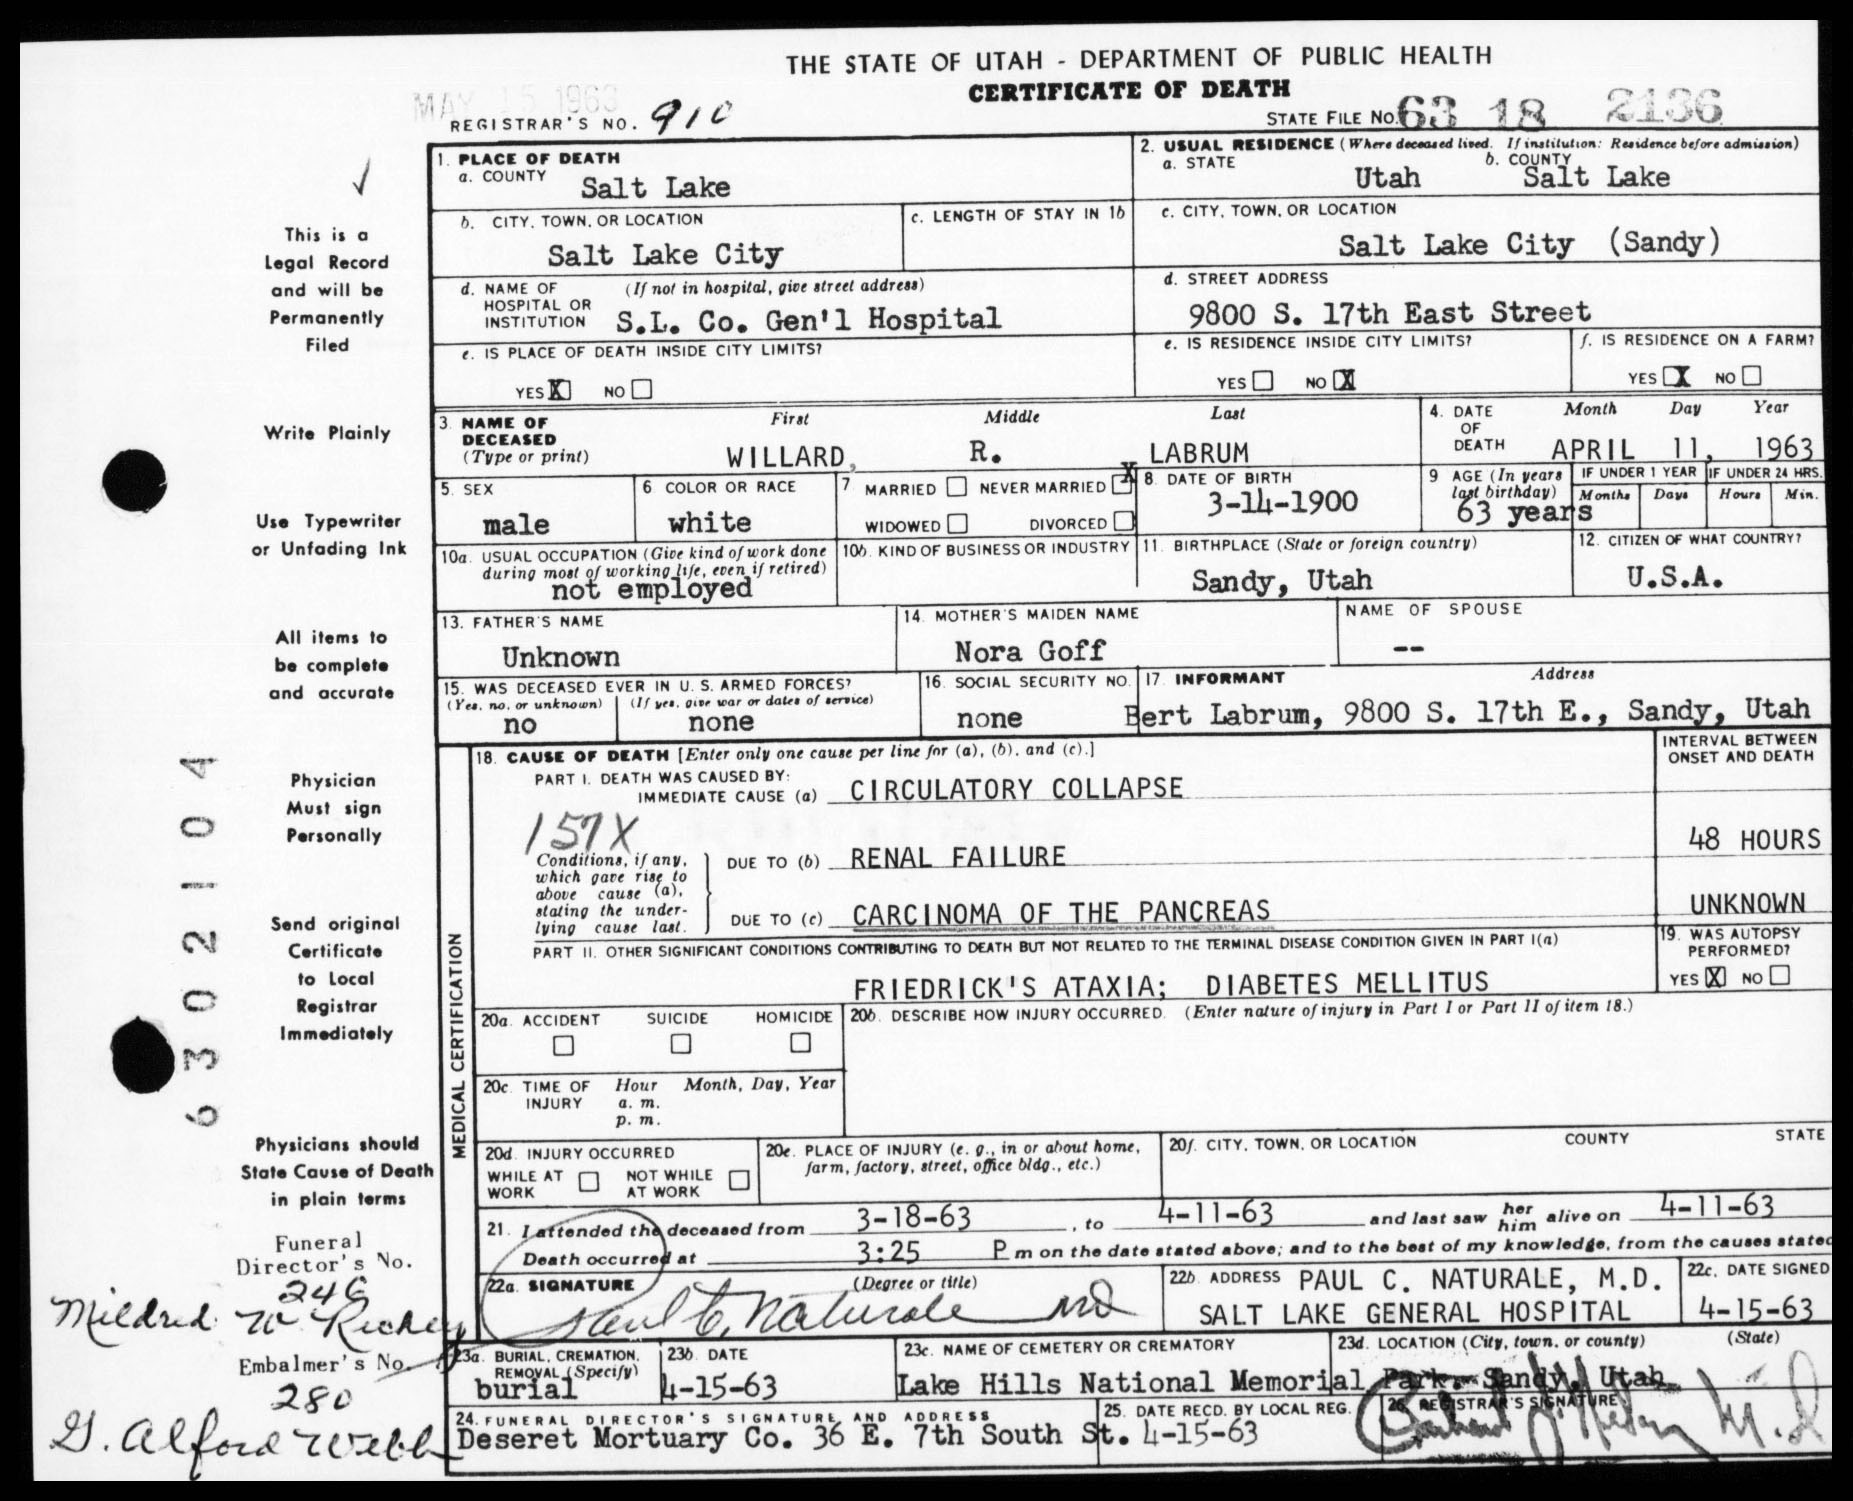 THE STATE OF UTAH - DEPARTMENT OF PUBLIC HEALTH
CERTIFICATE OF DEATH
MAY 15 1963
REGISTRAR'S NO. 910
STATE FILE NO. 63 18 2136
1. PLACE OF DEATH
a. COUNTY Salt Lake
2. USUAL RESIDENCE (Where deceased lived. If institution: Residence before admission)
a. STATE Utah b. COUNTY Salt Lake
b. CITY, TOWN, OR LOCATION
Salt Lake City
c. LENGTH OF STAY IN 1b
c. CITY, TOWN, OR LOCATION
Salt Lake City (Sandy)
d. NAME OF HOSPITAL OR INSTITUTION (If not in hospital, give street address)
S.L. Co. Gen'l Hospital
d. STREET ADDRESS
9800 S. 17th East Street
e. IS PLACE OF DEATH INSIDE CITY LIMITS?
YES X NO
e. IS RESIDENCE INSIDE CITY LIMITS?
YES NO X
f. IS RESIDENCE ON A FARM?
YES X NO
3. NAME OF DECEASED (Type or print)
First Middle Last
WILLARD, R. LABRUM
4. DATE OF DEATH Month Day Year
APRIL 11, 1963
5. SEX
male
6 COLOR OR RACE
white
7 MARRIED NEVER MARRIED X
WIDOWED DIVORCED
8. DATE OF BIRTH
3-14-1900
9 AGE (In years last birthday)
63 years
IF UNDER 1 YEAR
Months Days
IF UNDER 24 HRS.
Hours Min.
10a. USUAL OCCUPATION (Give kind of work done during most of working life, even if retired)
not employed
10b. KIND OF BUSINESS OR INDUSTRY
11. BIRTHPLACE (State or foreign country)
Sandy, Utah
12. CITIZEN OF WHAT COUNTRY?
U.S.A.
13. FATHER'S NAME
Unknown
14. MOTHER'S MAIDEN NAME
Nora Goff
NAME OF SPOUSE
--
15. WAS DECEASED EVER IN U. S. ARMED FORCES?
(Yes, no, or unknown) (If yes, give war or dates of service)
no none
16. SOCIAL SECURITY NO.
none
17. INFORMANT Address
Bert Labrum, 9800 S. 17th E., Sandy, Utah
MEDICAL CERTIFICATION
18. CAUSE OF DEATH [Enter only one cause per line for (a), (b), and (c).]
INTERVAL BETWEEN ONSET AND DEATH
PART I. DEATH WAS CAUSED BY:
IMMEDIATE CAUSE (a) CIRCULATORY COLLAPSE
157X
Conditions, if any, which gave rise to above cause (a), stating the underlying cause last.
DUE TO (b) RENAL FAILURE
48 HOURS
DUE TO (c) CARCINOMA OF THE PANCREAS
UNKNOWN
PART II. OTHER SIGNIFICANT CONDITIONS CONTRIBUTING TO DEATH BUT NOT RELATED TO THE TERMINAL DISEASE CONDITION GIVEN IN PART I(a)
FRIEDRICK'S ATAXIA; DIABETES MELLITUS
19. WAS AUTOPSY PERFORMED?
YES X NO
20a. ACCIDENT SUICIDE HOMICIDE
20b. DESCRIBE HOW INJURY OCCURRED. (Enter nature of injury in Part I or Part II of item 18.)
20c. TIME OF INJURY Hour Month, Day, Year
a. m.
p. m.
20d. INJURY OCCURRED
WHILE AT WORK NOT WHILE AT WORK
20e. PLACE OF INJURY (e. g., in or about home, farm, factory, street, office bldg., etc.)
20f. CITY, TOWN, OR LOCATION COUNTY STATE
21. I attended the deceased from 3-18-63, to 4-11-63 and last saw her him alive on 4-11-63
Death occurred at 3:25 P m on the date stated above; and to the best of my knowledge, from the causes stated
22a. SIGNATURE (Degree or title)
Paul C. Naturale MD
22b. ADDRESS PAUL C. NATURALE, M.D.
SALT LAKE GENERAL HOSPITAL
22c. DATE SIGNED
4-15-63
23a. BURIAL, CREMATION, REMOVAL (Specify)
burial
23b. DATE
4-15-63
23c. NAME OF CEMETERY OR CREMATORY
23d. LOCATION (City, town, or county) (State)
Lake Hills National Memorial Park- Sandy, Utah
24. FUNERAL DIRECTOR'S SIGNATURE AND ADDRESS
Deseret Mortuary Co. 36 E. 7th South St.
25. DATE RECD. BY LOCAL REG.
4-15-63
26. REGISTRAR'S SIGNATURE
M.D
This is a
Legal Record
and will be
Permanently
Filed
Write Plainly
Use Typewriter
or Unfading Ink
All items to
be complete
and accurate
Physician
Must sign
Personally
Send original
Certificate
to Local
Registrar
Immediately
Physicians should
State Cause of Death
in plain terms
Funeral
Director's No.
246
Mildred W Richey
Embalmer's No.
280
G. Alford Webb
6302104